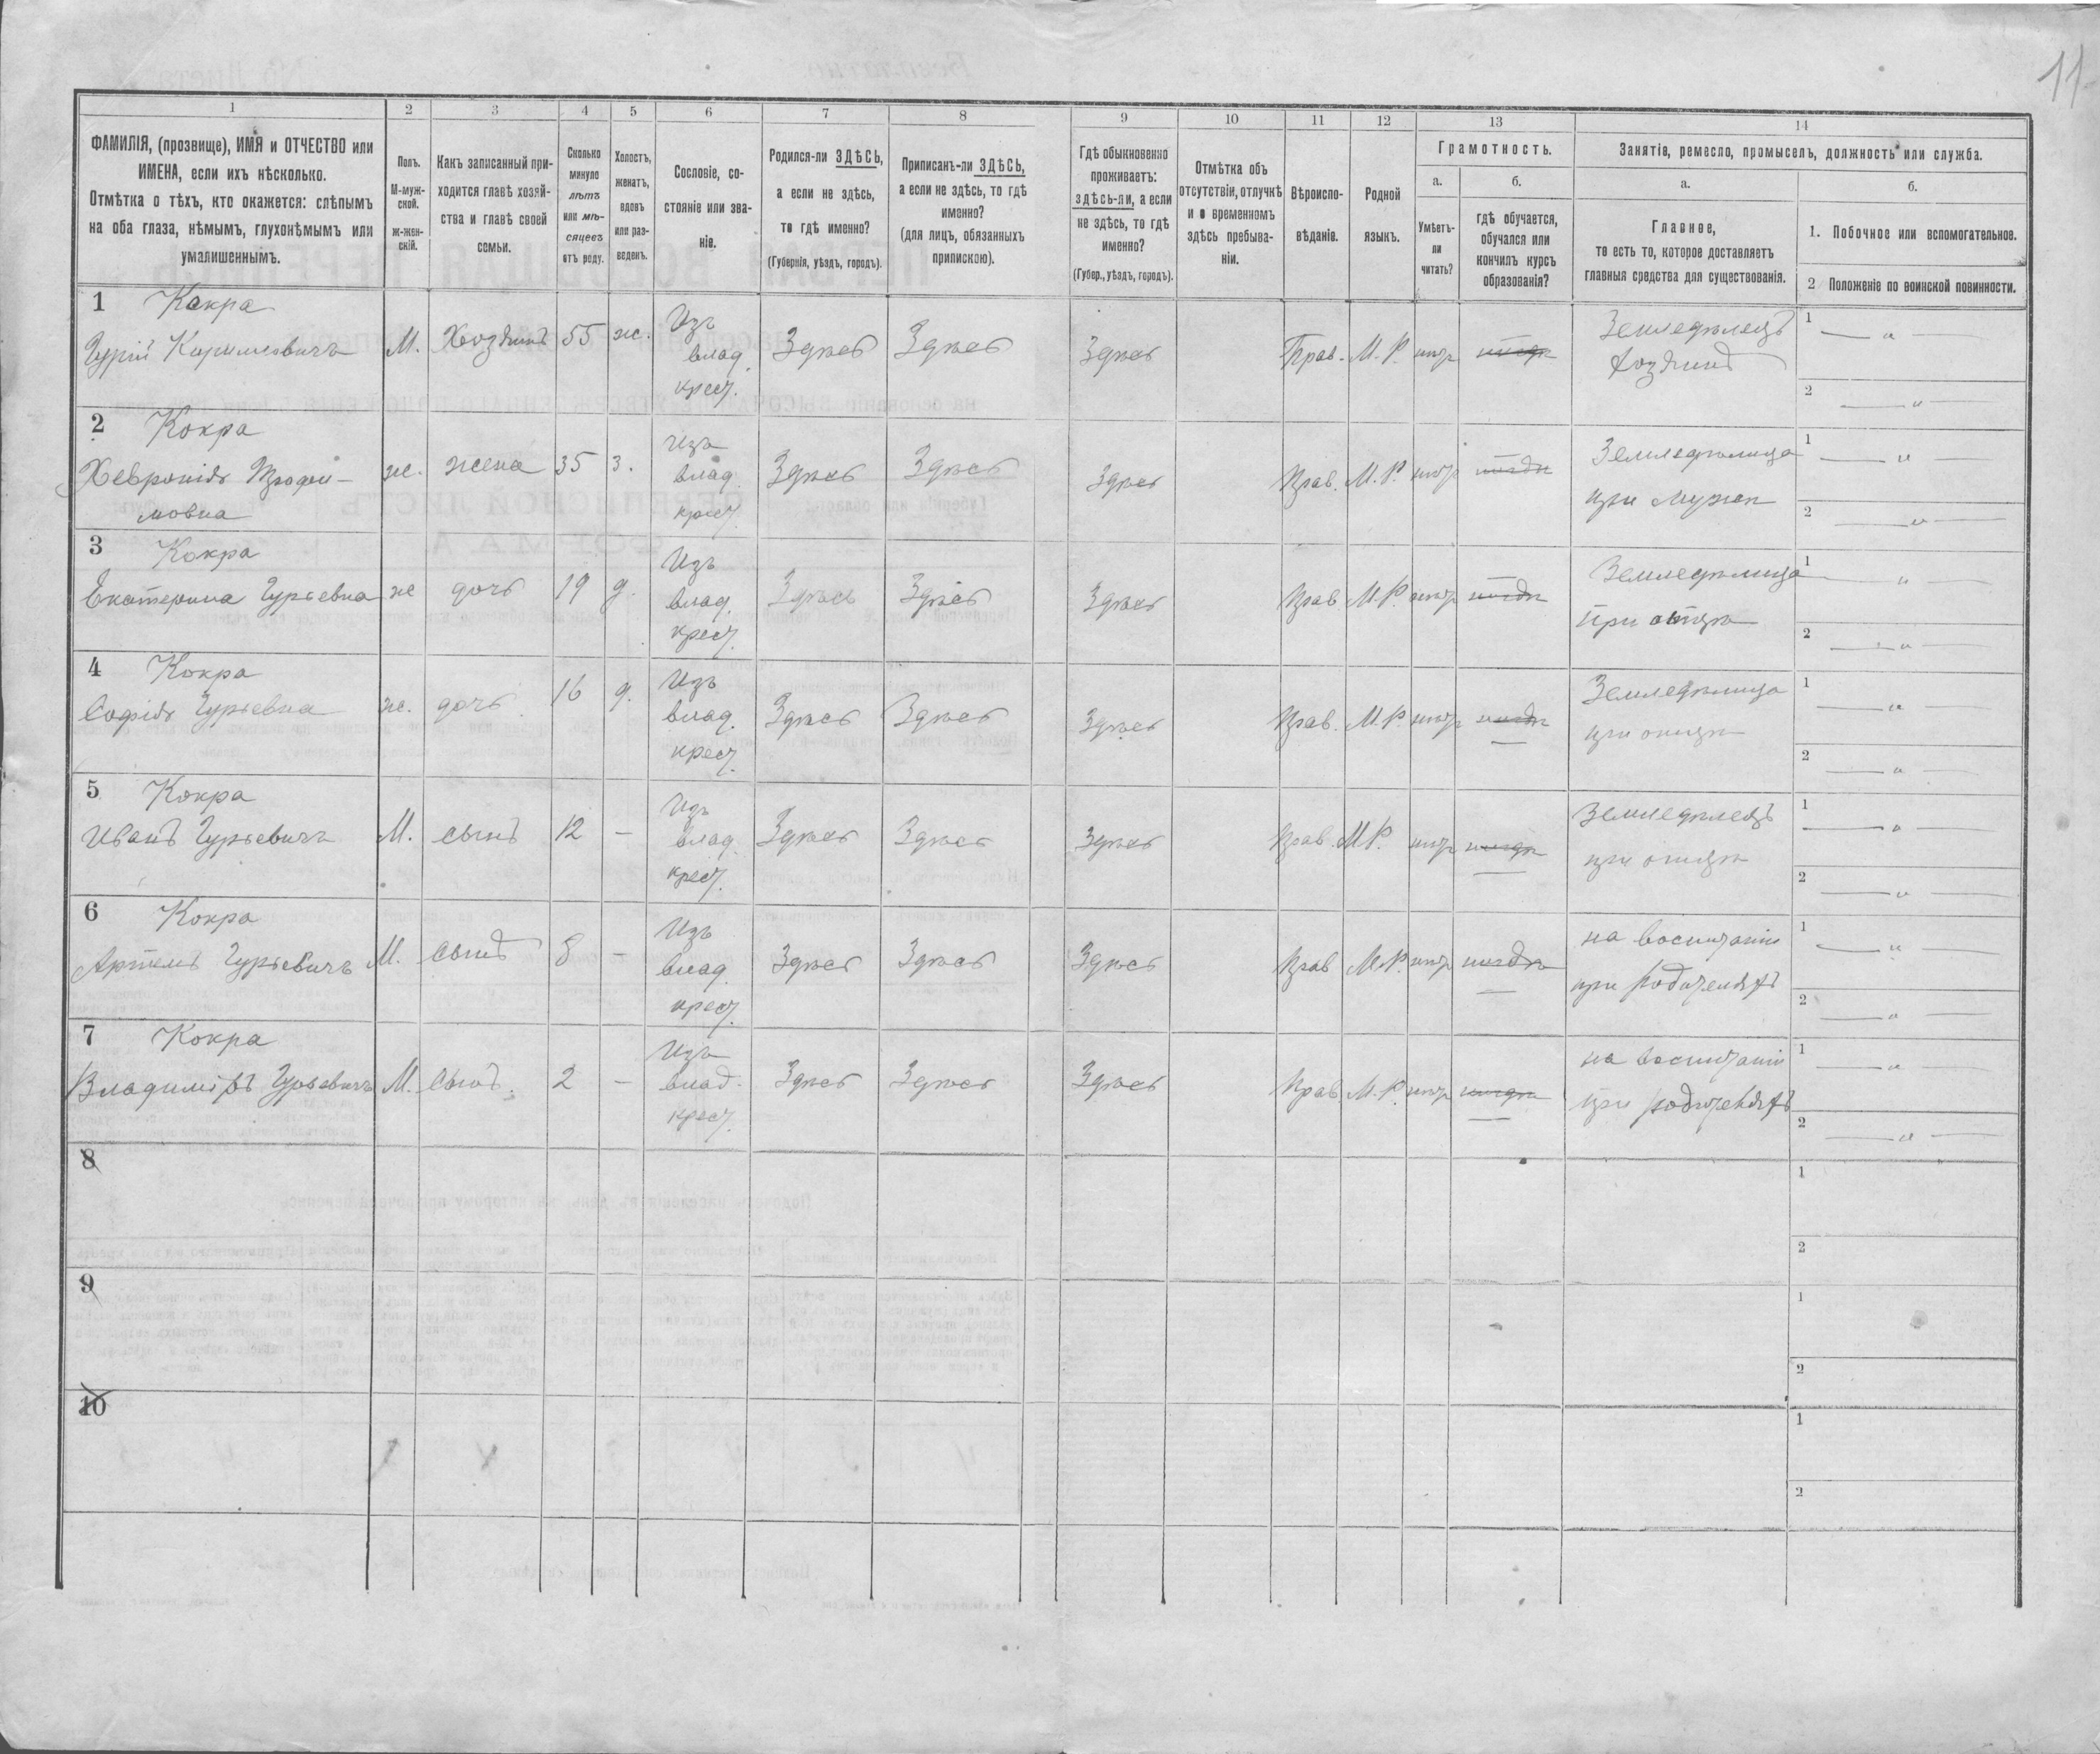 11
1 2 3 4 5 6 7 8 9 10 11 12 13 14
ФАМИЛІЯ, (прозвище), ИМЯ и ОТЧЕСТВО или
ИМЕНА, если ихъ нѣсколько.
Отмѣтка о тѣхъ, кто окажется: слѣпымъ
на оба глаза, нѣмымъ, глухонѣмымъ или
умалишеннымъ.
Полъ.
М-муж-
ской.
ж-жен-
скій.
Какъ записанный при-
ходится главѣ хозяй-
ства и главѣ своей
семьи.
Сколько
минуло
лѣтъ
или мѣ-
сяцевъ
отъ роду.
Холостъ,
женатъ,
вдовъ
или раз-
веденъ.
Сословіе, со-
стояніе или зва-
ніе.
Родился-ли ЗДѢСЬ,
а если не здѣсь,
то гдѣ именно?
(Губернія, уѣздъ, городъ).
Приписанъ-ли ЗДѢСЬ,
а если не здѣсь, то гдѣ
именно?
(для лицъ, обязанныхъ
припискою).
Гдѣ обыкновенно
проживаетъ:
здѣсь-ли, а если
не здѣсь, то гдѣ
именно?
(Губер., уѣздъ, городъ).
Отмѣтка объ
отсутствіи, отлучкѣ
и о временномъ
здѣсь пребыва-
ніи.
Вѣроиспо-
вѣданіе.
Родной
языкъ.
Грамотность.
а.
Умѣетъ-
ли
читать?
б.
гдѣ обучается,
обучался или
кончилъ курсъ
образованія?
Занятіе, ремесло, промыселъ, должность или служба.
а.
Главное,
то есть то, которое доставляетъ
главныя средства для существованія.
б.
1. Побочное или вспомогательное.
2 Положеніе по воинской повинности.
1 Кокра
Гурій Кириловичъ М. Хозяинъ 55 ж. Изъ влад. крест. Здѣсь Здѣсь Здѣсь Прав. М. Р. нѣтъ нигдѣ Земледѣлецъ
хозяинъ
1 — „ —
2 — „ —
2 Кокра
Хевронія Трофи-
мовна ж. жена 35 з. Изъ влад. крест. Здѣсь Здѣсь Здѣсь Прав. М. Р. нѣтъ нигдѣ Земледѣлица
при мужѣ
1 — „ —
2 — „ —
3 Кокра
Екатерина Гурьевна ж дочь 19 д. Изъ влад. крест. Здѣсь Здѣсь Здѣсь Прав М. Р. нѣтъ нигдѣ Земледѣлица
при отцѣ
1 — „ —
2 — „ —
4 Кокра
Софія Гурьевна ж. дочь 16 д. Изъ влад. крест. Здѣсь Здѣсь Здѣсь Прав. М. Р. нѣтъ нигдѣ Земледѣлица
при отцѣ
1 — „ —
2 — „ —
5 Кокра
Иванъ Гурьевичъ М. сынъ 12 — Изъ влад. крест. Здѣсь Здѣсь Здѣсь Прав. М Р. нѣтъ нигдѣ Земледѣлецъ
при отцѣ
1 — „ —
2 — „ —
6 Кокра
Артемъ Гурьевичъ М. сынъ 8 — Изъ влад. крест. Здѣсь Здѣсь Здѣсь Прав М. Р. нѣтъ нигдѣ на воспитаніи
при родителяхъ
1 — „ —
2 — „ —
7 Кокра
Владиміръ Гурьевичъ М. сынъ. 2 — Изъ влад. крест. Здѣсь Здѣсь Здѣсь Прав М. Р. нѣтъ нигдѣ на воспитаніи
при родителяхъ
1 — „ —
2 — „ —
8
1
2
9
1
2
10
1
2